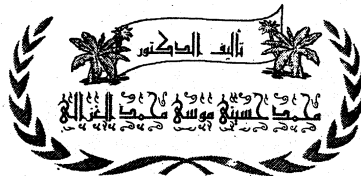 تأليف الدكتور
محمد حسيني موسى محمد الغزالي